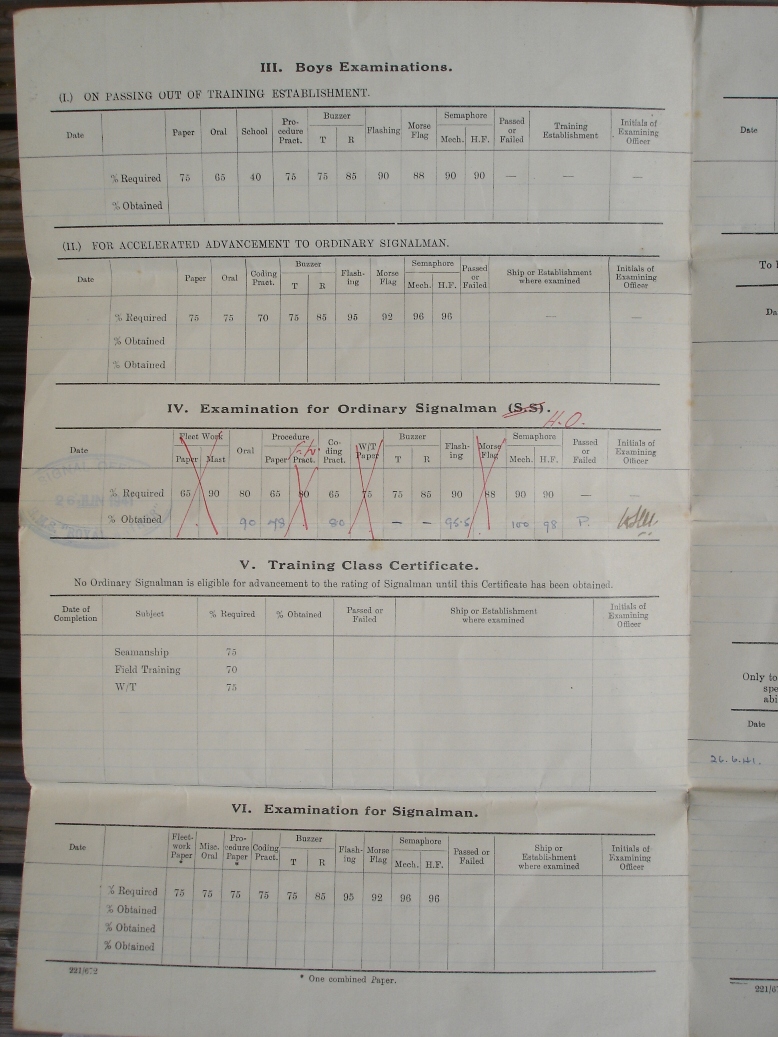 III. Boys Examinations.
(I.) ON PASSING OUT OF TRAINING ESTABLISHMENT.
Date Paper Oral School Pro-cedure Pract. Buzzer T R Flashing Morse Flag Semaphore Mech. H.F. Passed or Failed Training Establishment Initials of Examining Officer
% Required 75 65 40 75 75 85 90 88 90 90 — — —
% Obtained
(II.) FOR ACCELERATED ADVANCEMENT TO ORDINARY SIGNALMAN.
Date Paper Oral Coding Pract. Buzzer T R Flash-ing Morse Flag Semaphore Mech. H.F. Passed or Failed Ship or Establishment where examined Initials of Examining Officer
% Required 75 75 70 75 85 95 92 96 96 — —
% Obtained
% Obtained
IV. Examination for Ordinary Signalman (S.S). H.O.
Date Fleet Work Paper Mast Oral Procedure Paper Pract. Co-ding Pract. W/T Paper Buzzer T R Flash-ing Morse Flag Semaphore Mech. H.F. Passed or Failed Initials of Examining Officer
% Required 65 90 80 65 80 65 75 75 85 90 88 90 90 — —
% Obtained 90 80 — — 95.5 100 98 P.
V. Training Class Certificate.
No Ordinary Signalman is eligible for advancement to the rating of Signalman until this Certificate has been obtained.
Date of Completion Subject % Required % Obtained Passed or Failed Ship or Establishment where examined Initials of Examining Officer
Seamanship 75
Field Training 70
W/T 75
VI. Examination for Signalman.
Date Fleet-work Paper * Misc. Oral Pro-cedure Paper * Coding Pract. Buzzer T R Flash-ing Morse Flag Semaphore Mech. H.F. Passed or Failed Ship or Establishment where examined Initials of Examining Officer
% Required 75 75 75 75 75 85 95 92 96 96
% Obtained
% Obtained
% Obtained
221/672
* One combined Paper.
Date
To
Da
Only to
spe
abi
Date
26.6.41.
221/6